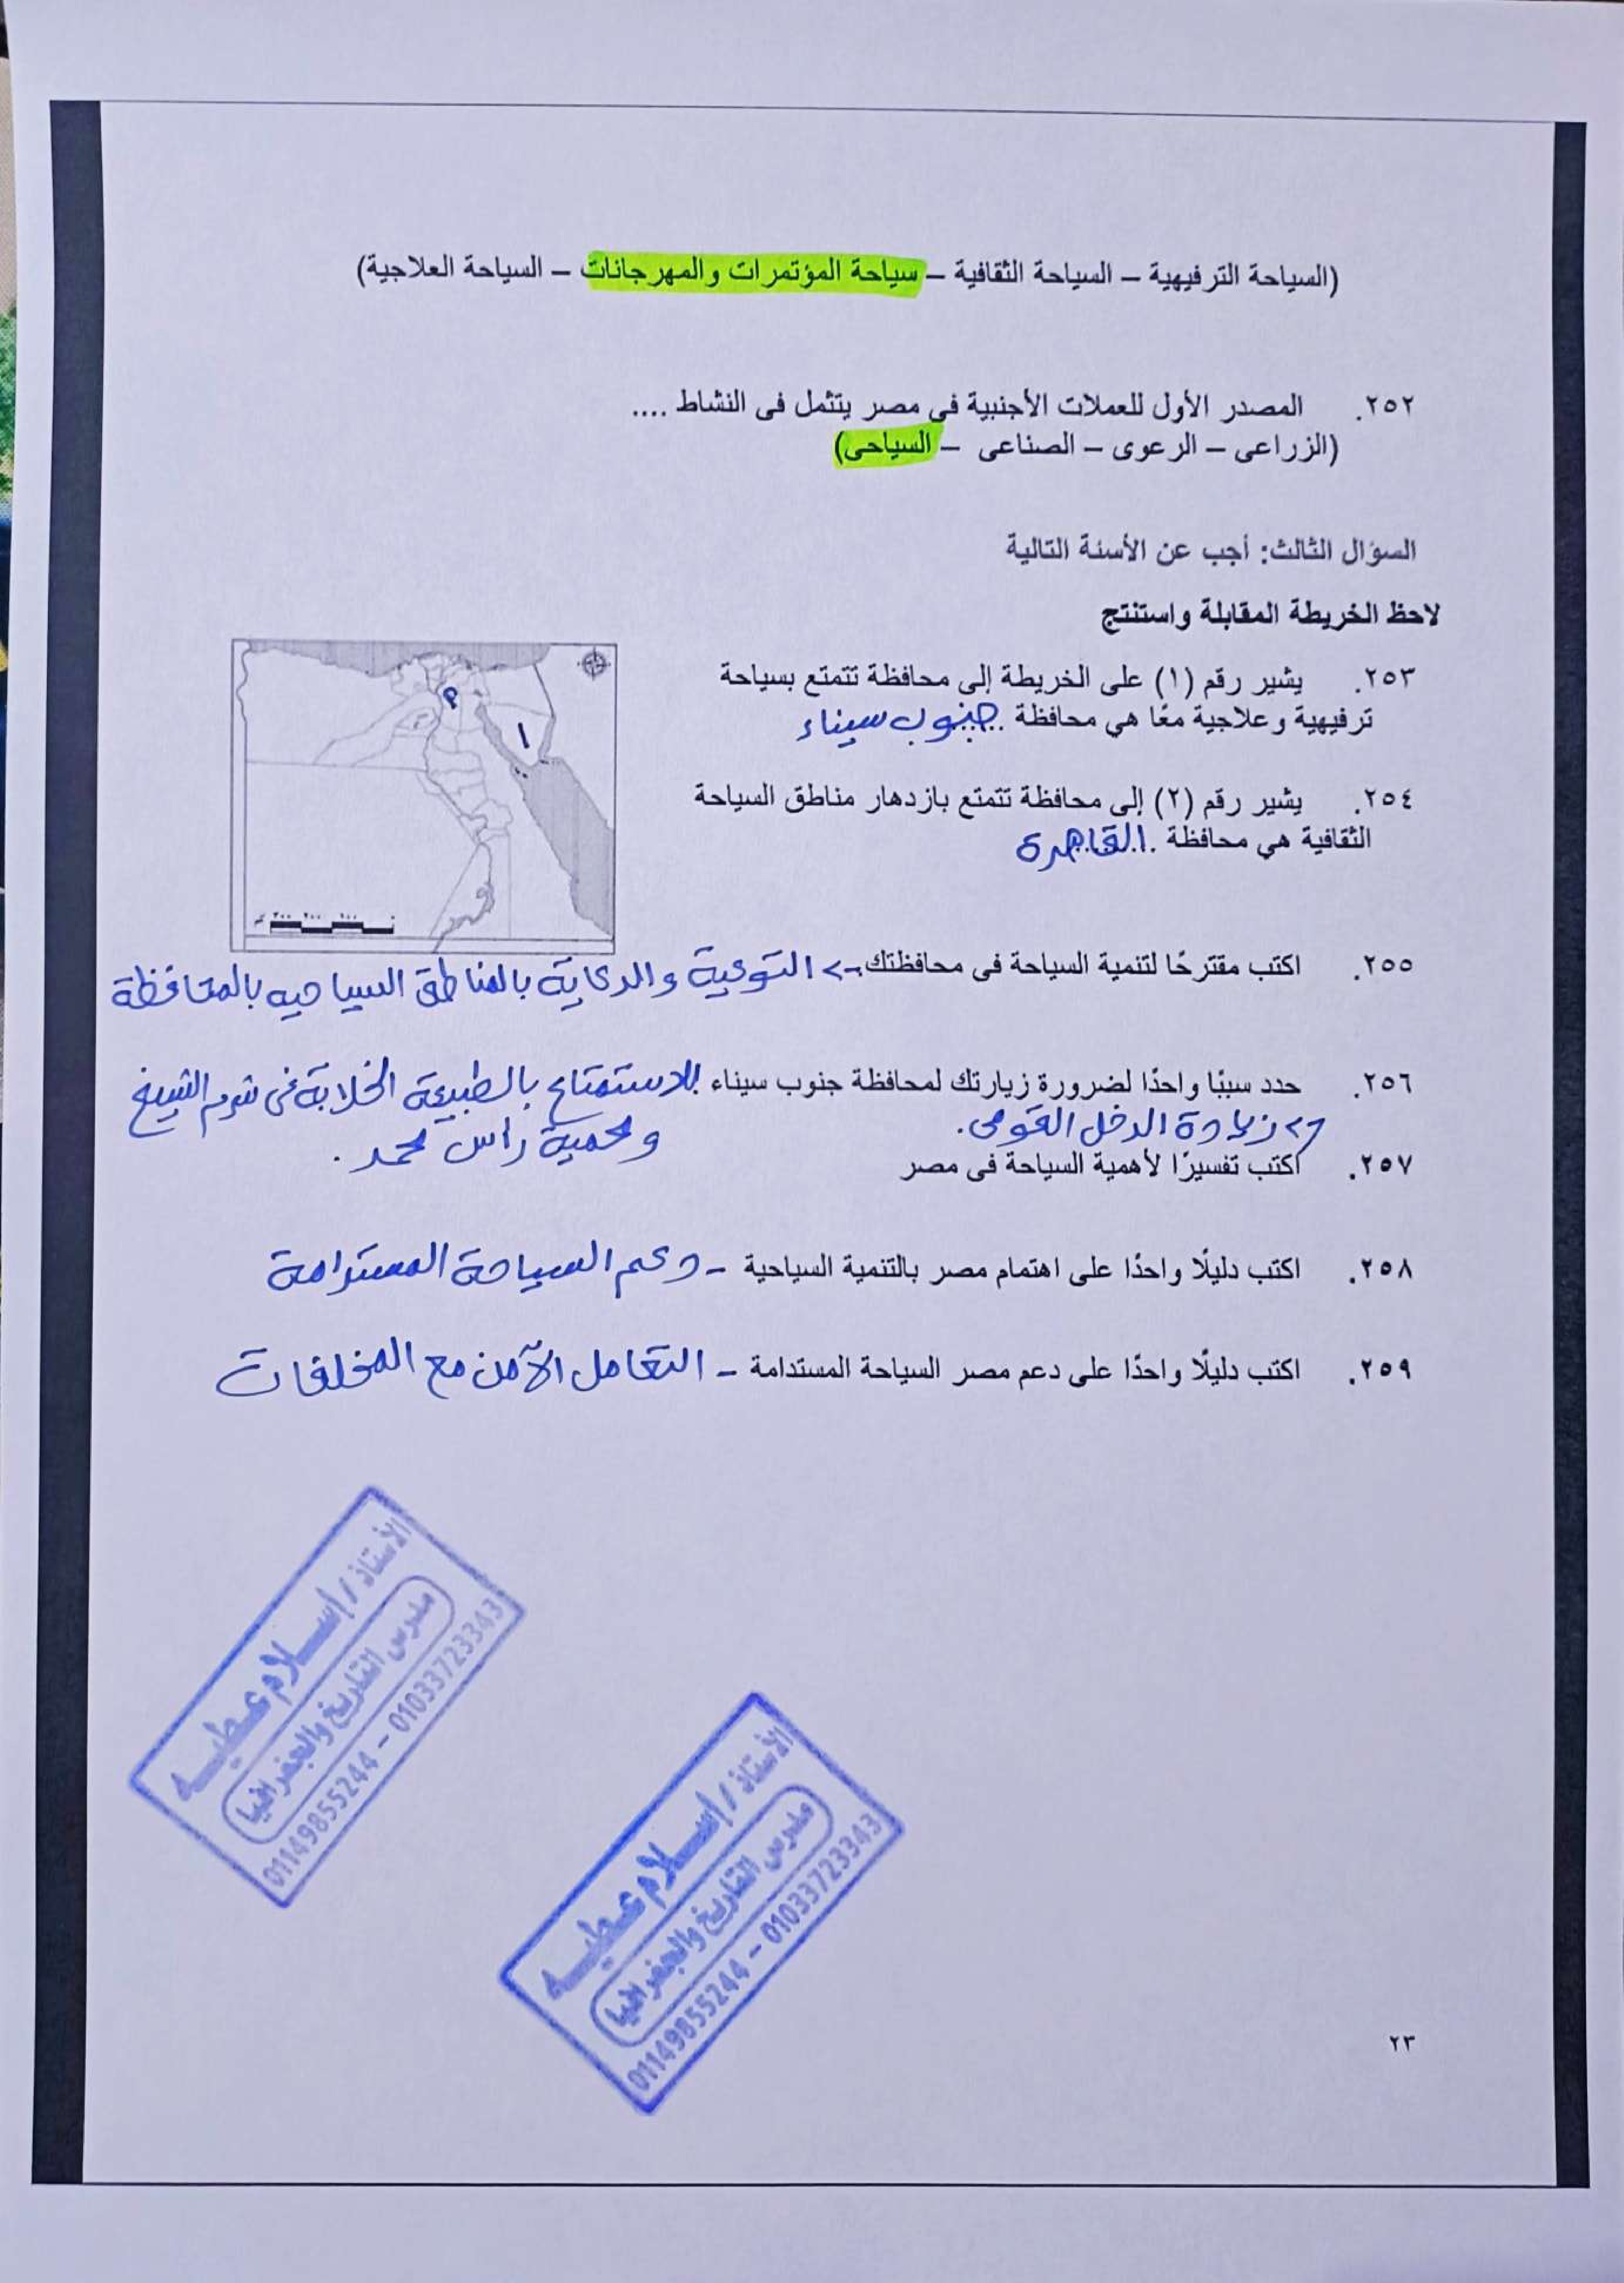 (السياحة الترفيهية – السياحة الثقافية – سياحة المؤتمرات والمهرجانات – السياحة العلاجية)
٢٥٢. المصدر الأول للعملات الأجنبية في مصر يتثمل فى النشاط ....
(الزراعى – الرعوى – الصناعى – السياحى)
السؤال الثالث: أجب عن الأسئة التالية
لاحظ الخريطة المقابلة واستنتج
٢٥٣. يشير رقم (١) على الخريطة إلى محافظة تتمتع بسياحة
ترفيهية وعلاجية معًا هي محافظة جنوب سيناء
٢٥٤. يشير رقم (٢) إلى محافظة تتمتع بازدهار مناطق السياحة
الثقافية هي محافظة القاهرة
٢
١
كم ٣٠٠ ٢٠٠ ١٠٠ ٠
٢٥٥. اكتب مقترحًا لتنمية السياحة فى محافظتك -> التوعية والدعاية بالمناطق السياحيه بالمحافظة
٢٥٦. حدد سببًا واحدًا لضرورة زيارتك لمحافظة جنوب سيناء للاستمتاع بالطبيعة الخلابة فى شرم الشيخ
ومحمية راس محمد.
-> زيادة الدخل القومى.
٢٥٧. اكتب تفسيرًا لأهمية السياحة فى مصر
٢٥٨. اكتب دليلًا واحدًا على اهتمام مصر بالتنمية السياحية - دعم السياحة المستدامة
٢٥٩. اكتب دليلًا واحدًا على دعم مصر السياحة المستدامة - التعامل الآمن مع المخلفات
الأستاذ / إسلام عطيه
مدرس التاريخ والجغرافيا
01149855244 – 01033723343
الأستاذ / إسلام عطيه
مدرس التاريخ والجغرافيا
01149855244 – 01033723343
٢٣